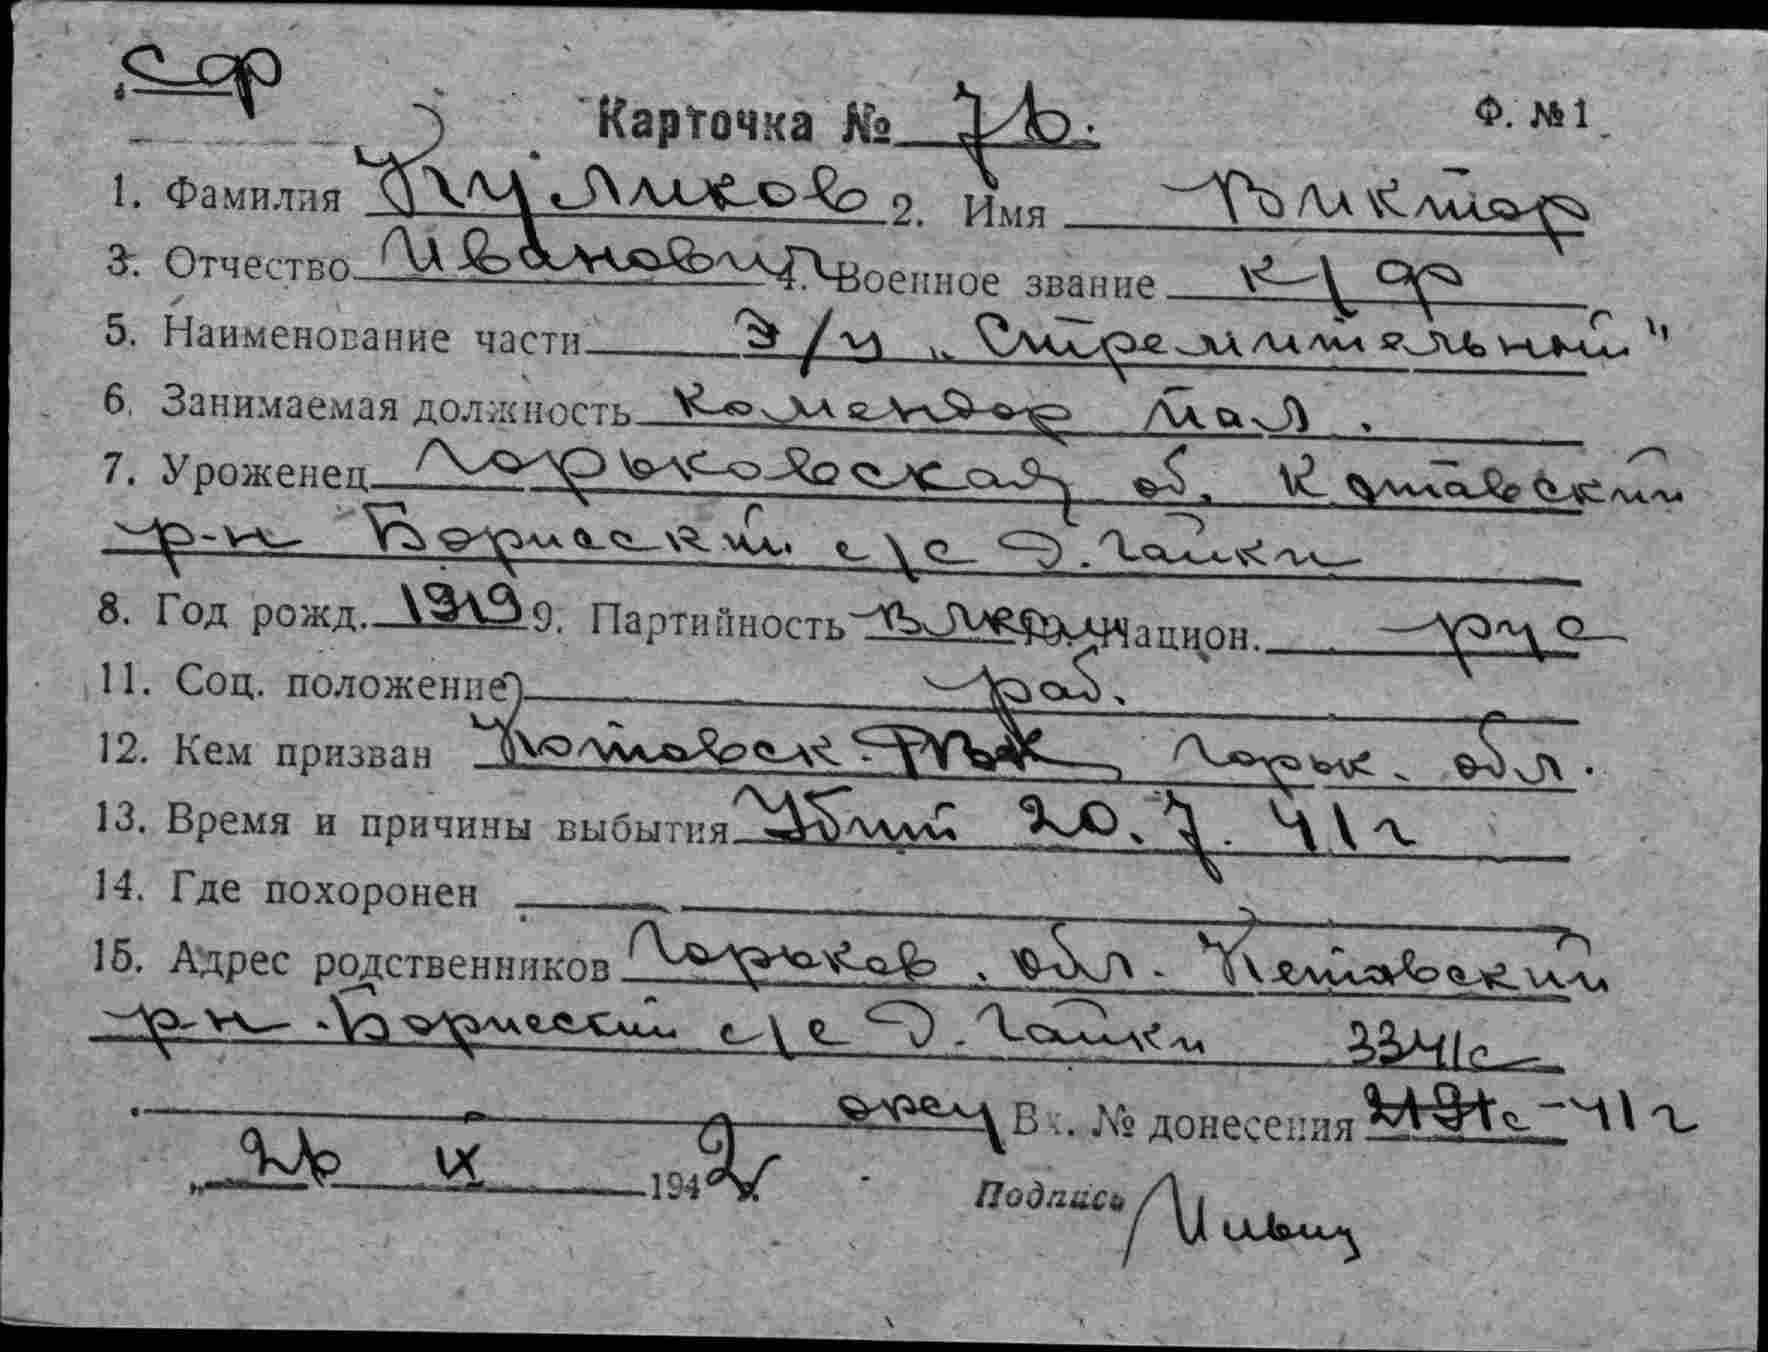 СФ
Карточка № 76. Ф. №1
1. Фамилия Куликов 2. Имя Виктор
3. Отчество Иванович 4. Военное звание к/ф
5. Наименование части Э/м „Стремительный"
6. Занимаемая должность комендор
7. Уроженец Горьковская об. Котовский
р-н Борисский с/с д. Гайки
8. Год рожд. 1919 9. Партийность ВЛКСМ Национ. рус
11. Соц. положение раб.
12. Кем призван Котовск. РВК Горьк. обл.
13. Время и причины выбытия Убит 20.7.41г
14. Где похоронен
15. Адрес родственников Горьков. обл. Котовский
р-н Борисский с/с д. Гайки 3341с
Вх. № донесения 2191с-41г
„26 IX 1942
Подпись